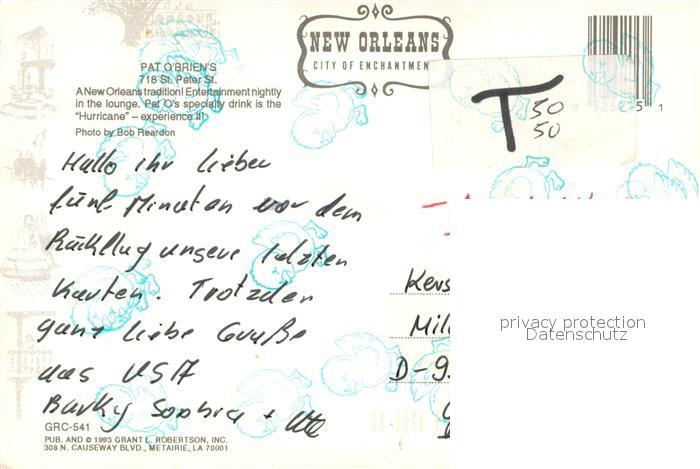 NEW ORLEANS
CITY OF ENCHANTMENT
PAT O'BRIEN'S
718 St. Peter St.
A New Orleans tradition! Entertainment nightly
in the lounge. Pat O's specialty drink is the
"Hurricane" – experience it!
Photo by Bob Reardon
T 50
50
1
Hallo ihr lieben
fünf Minuten vor dem
Rückflug unsere letzten
Karten. Trotzdem
ganz liebe Grüße
aus USA
Sophia + Ute
Kers
D-9
privacy protection
Datenschutz
GRC-541
PUB. AND © 1993 GRANT L. ROBERTSON, INC.
308 N. CAUSEWAY BLVD., METAIRIE, LA 70001